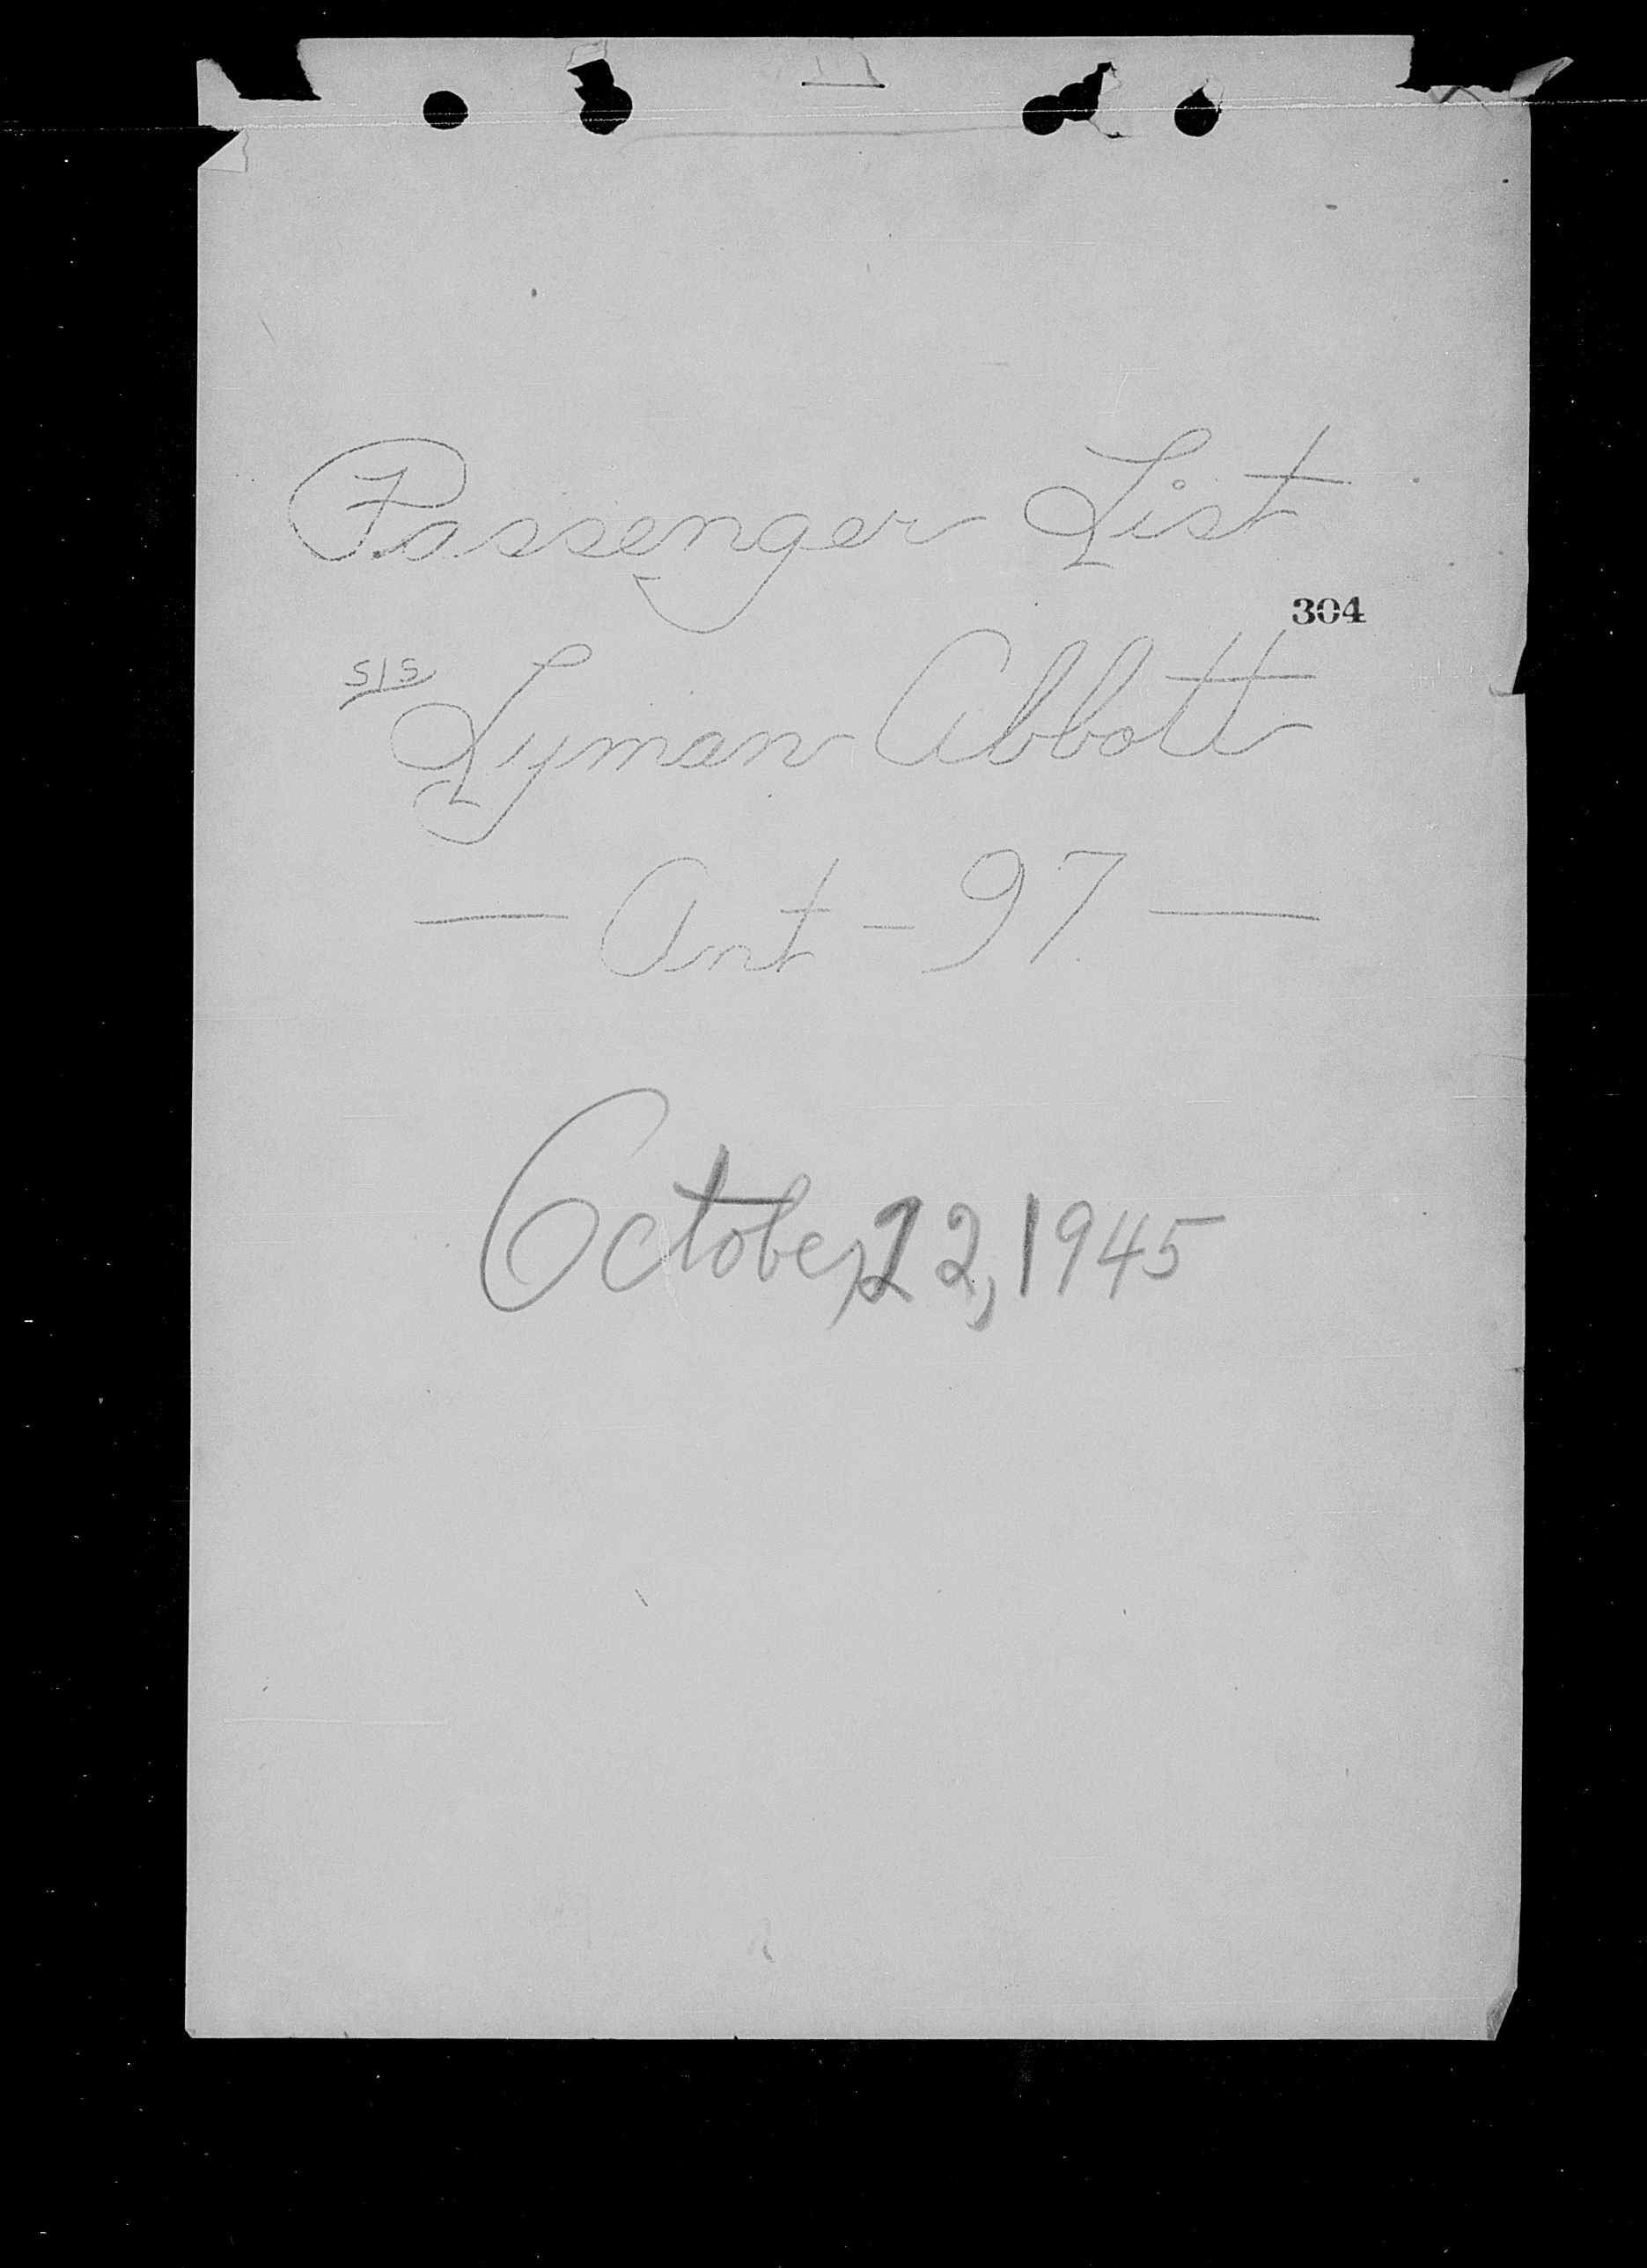 Passenger List
304
S/S Lyman Abbott
— Ant - 97 —
October 22, 1945